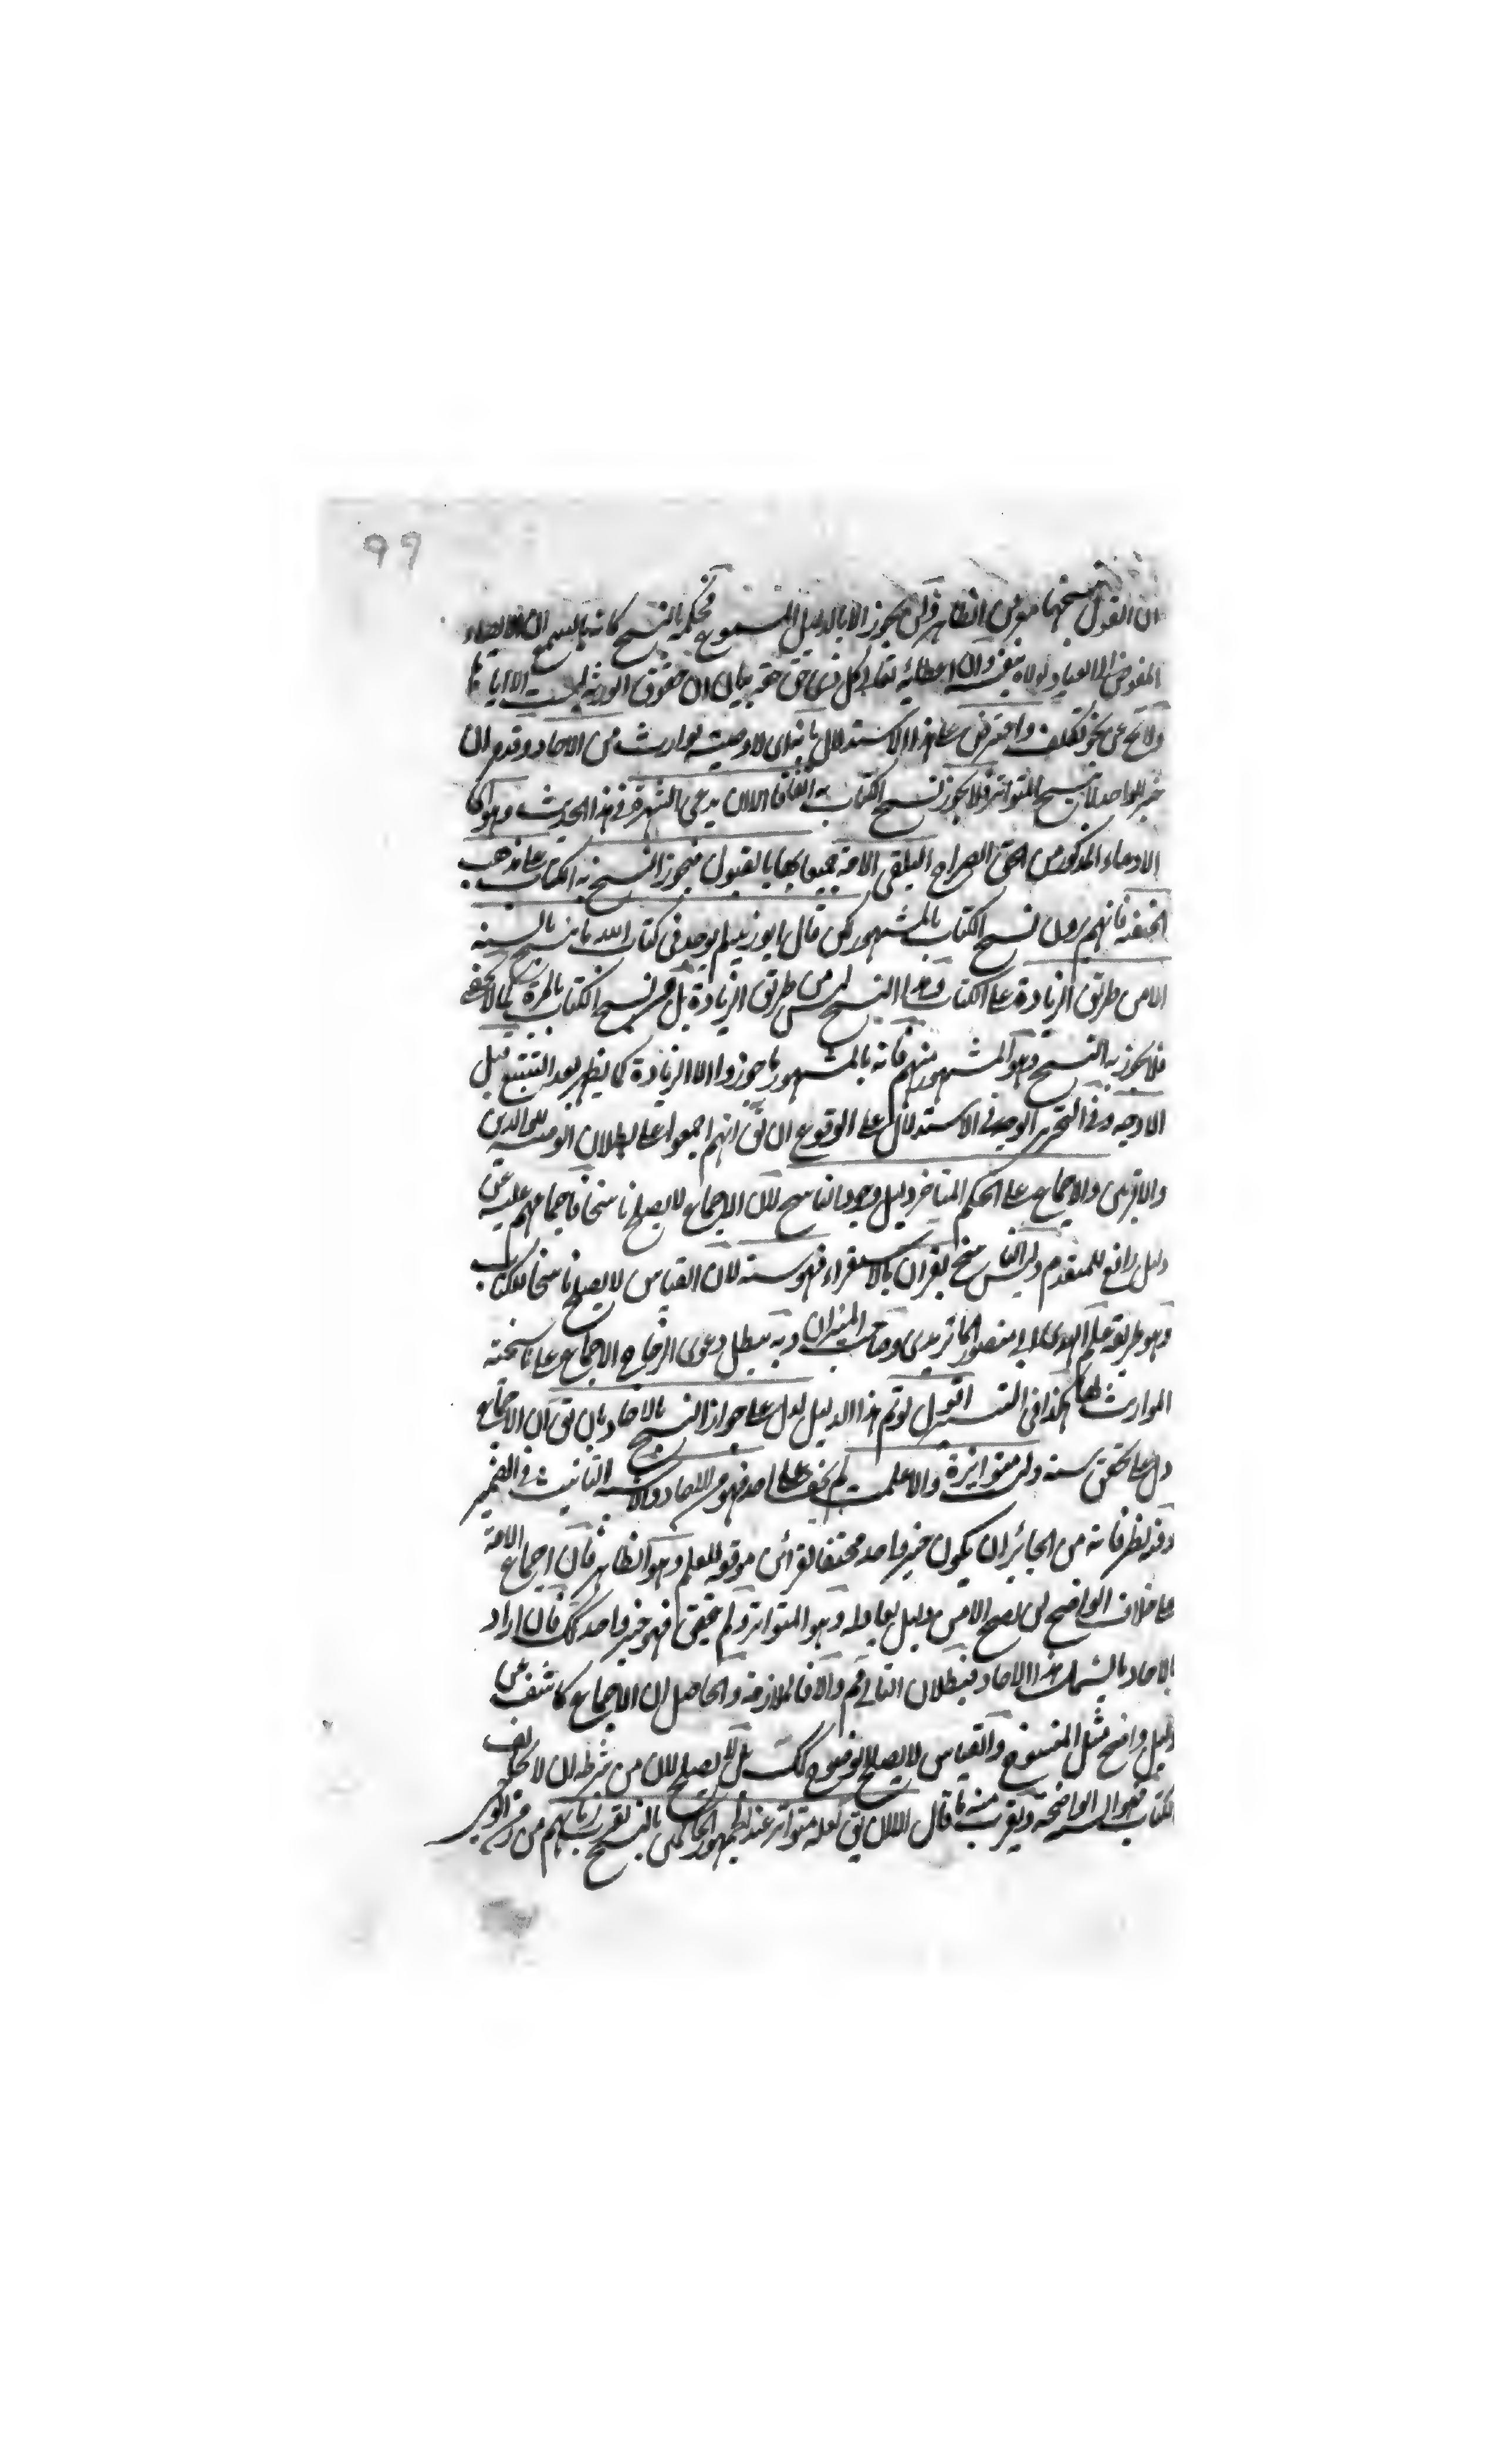 99
ان القول بنسخها صرف عن الظاهر ولن يجوز الا بالدليل المسموع فحكمه بالنسخ كانه بالسمع ان الايصاء
المفوض الى العباد تولاه بنفسه وان اعطائه تعالى كل ذى حق حقه بيان ان حقوق الورثة ليست الا اياها
ولا يخ عن نحو تكلف واعترض على هذا الاستدلال بانه اى لا وصية لوارث من الاحاد وقد مر ان
خبر الواحد لا ينسخ المتواتر فلا يجوز نسخ الكتاب به اتفاقا الا ان يدعى الشهرة فى هذا الحديث وهو كا
الادعاء المذكور من الحق الصراح لتلقى الامة جميعا بها بالقبول فيجوز النسخ به الكتاب على مذهب
الحنفية فانهم يرون نسخ الكتاب بالمشهور لكن قال ابو زيد لم يوجد فى كتاب الله ما نسخ بالسنة
الا من طريق الزيادة على الكتاب وهذا النسخ ليس من طريق الزيادة بل هو نسخ الكتاب بالمرة كما لا يخفى
فلا يجوز به النسخ وهو المشهور منهم فانه بالمشهور ما جوزوا الا الزيادة كما يظهر بعد التتبع قيل
الاوجه وفى التحرير الوجه فى الاستدلال على الوقوع ان يق انهم اجمعوا على بطلان الوصية للوالدين
والاقربين والاجماع على الحكم المتاخر دليل وجود الناسخ لان الاجماع لا يصلح ناسخا فاجماعهم عليه عن
دليل رافع للمتقدم وليس الناسخ بقران بالاستقراء فهو سنة لان القياس لا يصلح ناسخا للكتاب
وهو طريقة علم الهدى ابى منصور الماتريدى وصاحب الميزان وبه يبطل دعوى الزجاج الاجماع على ناسخية
المواريث لها كذا فى التيسير اقول لو تم هذا الدليل لدل على جواز النسخ بالاحاد بان يق ان الاجماع
دل على تحقق سنة وليست متواترة والا علمت لم يخف على احد فهو من الاحاد والاشبه التانيث فى الضمير
وفيه نظر فانه من الجائز ان يكون خبر واحد محتفا بقرائن موقعه للعلم وهو الظاهر فان اجماع الامة
على خلاف الواضح لن يصح الا من دليل يعادله وهو المتواتر ولم يحقق فهو خبر واحد كك فان اراد
بالاحاد ما يشمل هذا الاحاد فبطلان التالى ثم والا فالملازمة والحاصل ان الاجماع كاشف عن
دليل واضح مثل المنسوخ والقياس لا يصلح لوضوح كك بل لا يصلح لان من شرطه ان لا يخالف
الكتاب فهو السنة الواضحة ويقرب منه ما قال الا ان يق لعله متواتر عند الجمهور الحاكمين بالنسخ لقرب زمانهم من زمن النبى